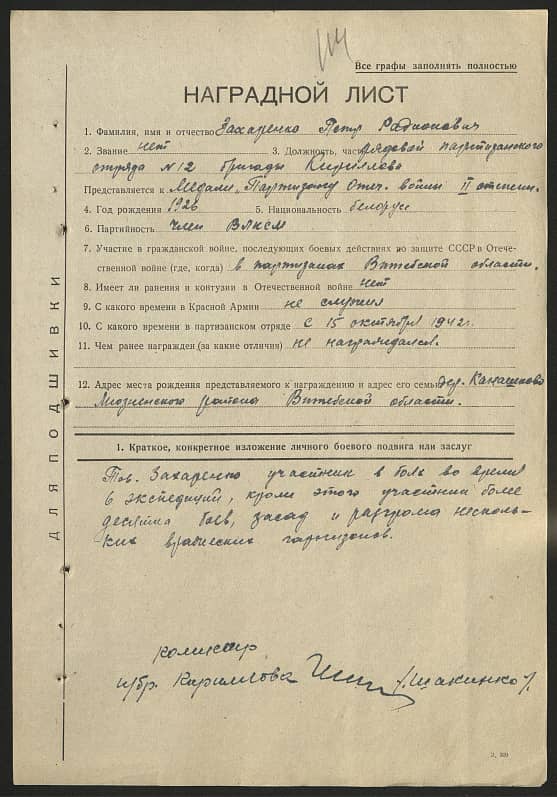 Все графы заполнять полностью
НАГРАДНОЙ ЛИСТ
1. Фамилия, имя и отчество Захаренко Петр Радионович
2. Звание нет 3. Должность, часть рядовой партизанского
отряда №12 бригады Кириллова
Представляется к Медали „Партизану Отеч. войны" II степени.
4. Год рождения 1926 5. Национальность белорус
6. Партийность член ВЛКСМ
7. Участие в гражданской войне, последующих боевых действиях по защите СССР в Отече-
ственной войне (где, когда) в партизанах Витебской области.
8. Имеет ли ранения и контузии в Отечественной войне нет
9. С какого времени в Красной Армии не служил
10. С какого времени в партизанском отряде с 15 октября 1942 г.
11. Чем ранее награжден (за какие отличия) не награждался.
12. Адрес места рождения представляемого к награждению и адрес его семьи дер. Канашково
Лиозненского района Витебской области.
1. Краткое, конкретное изложение личного боевого подвига или заслуг
Тов. Захаренко участник в боях во время
6 экспедиций, кроме этого участник более
десятка боев, засад и разгрома несколь-
ких вражеских гарнизонов.
комиссар
п/бр. Кириллова /Шакинко/.
ДЛЯ ПОДШИВКИ